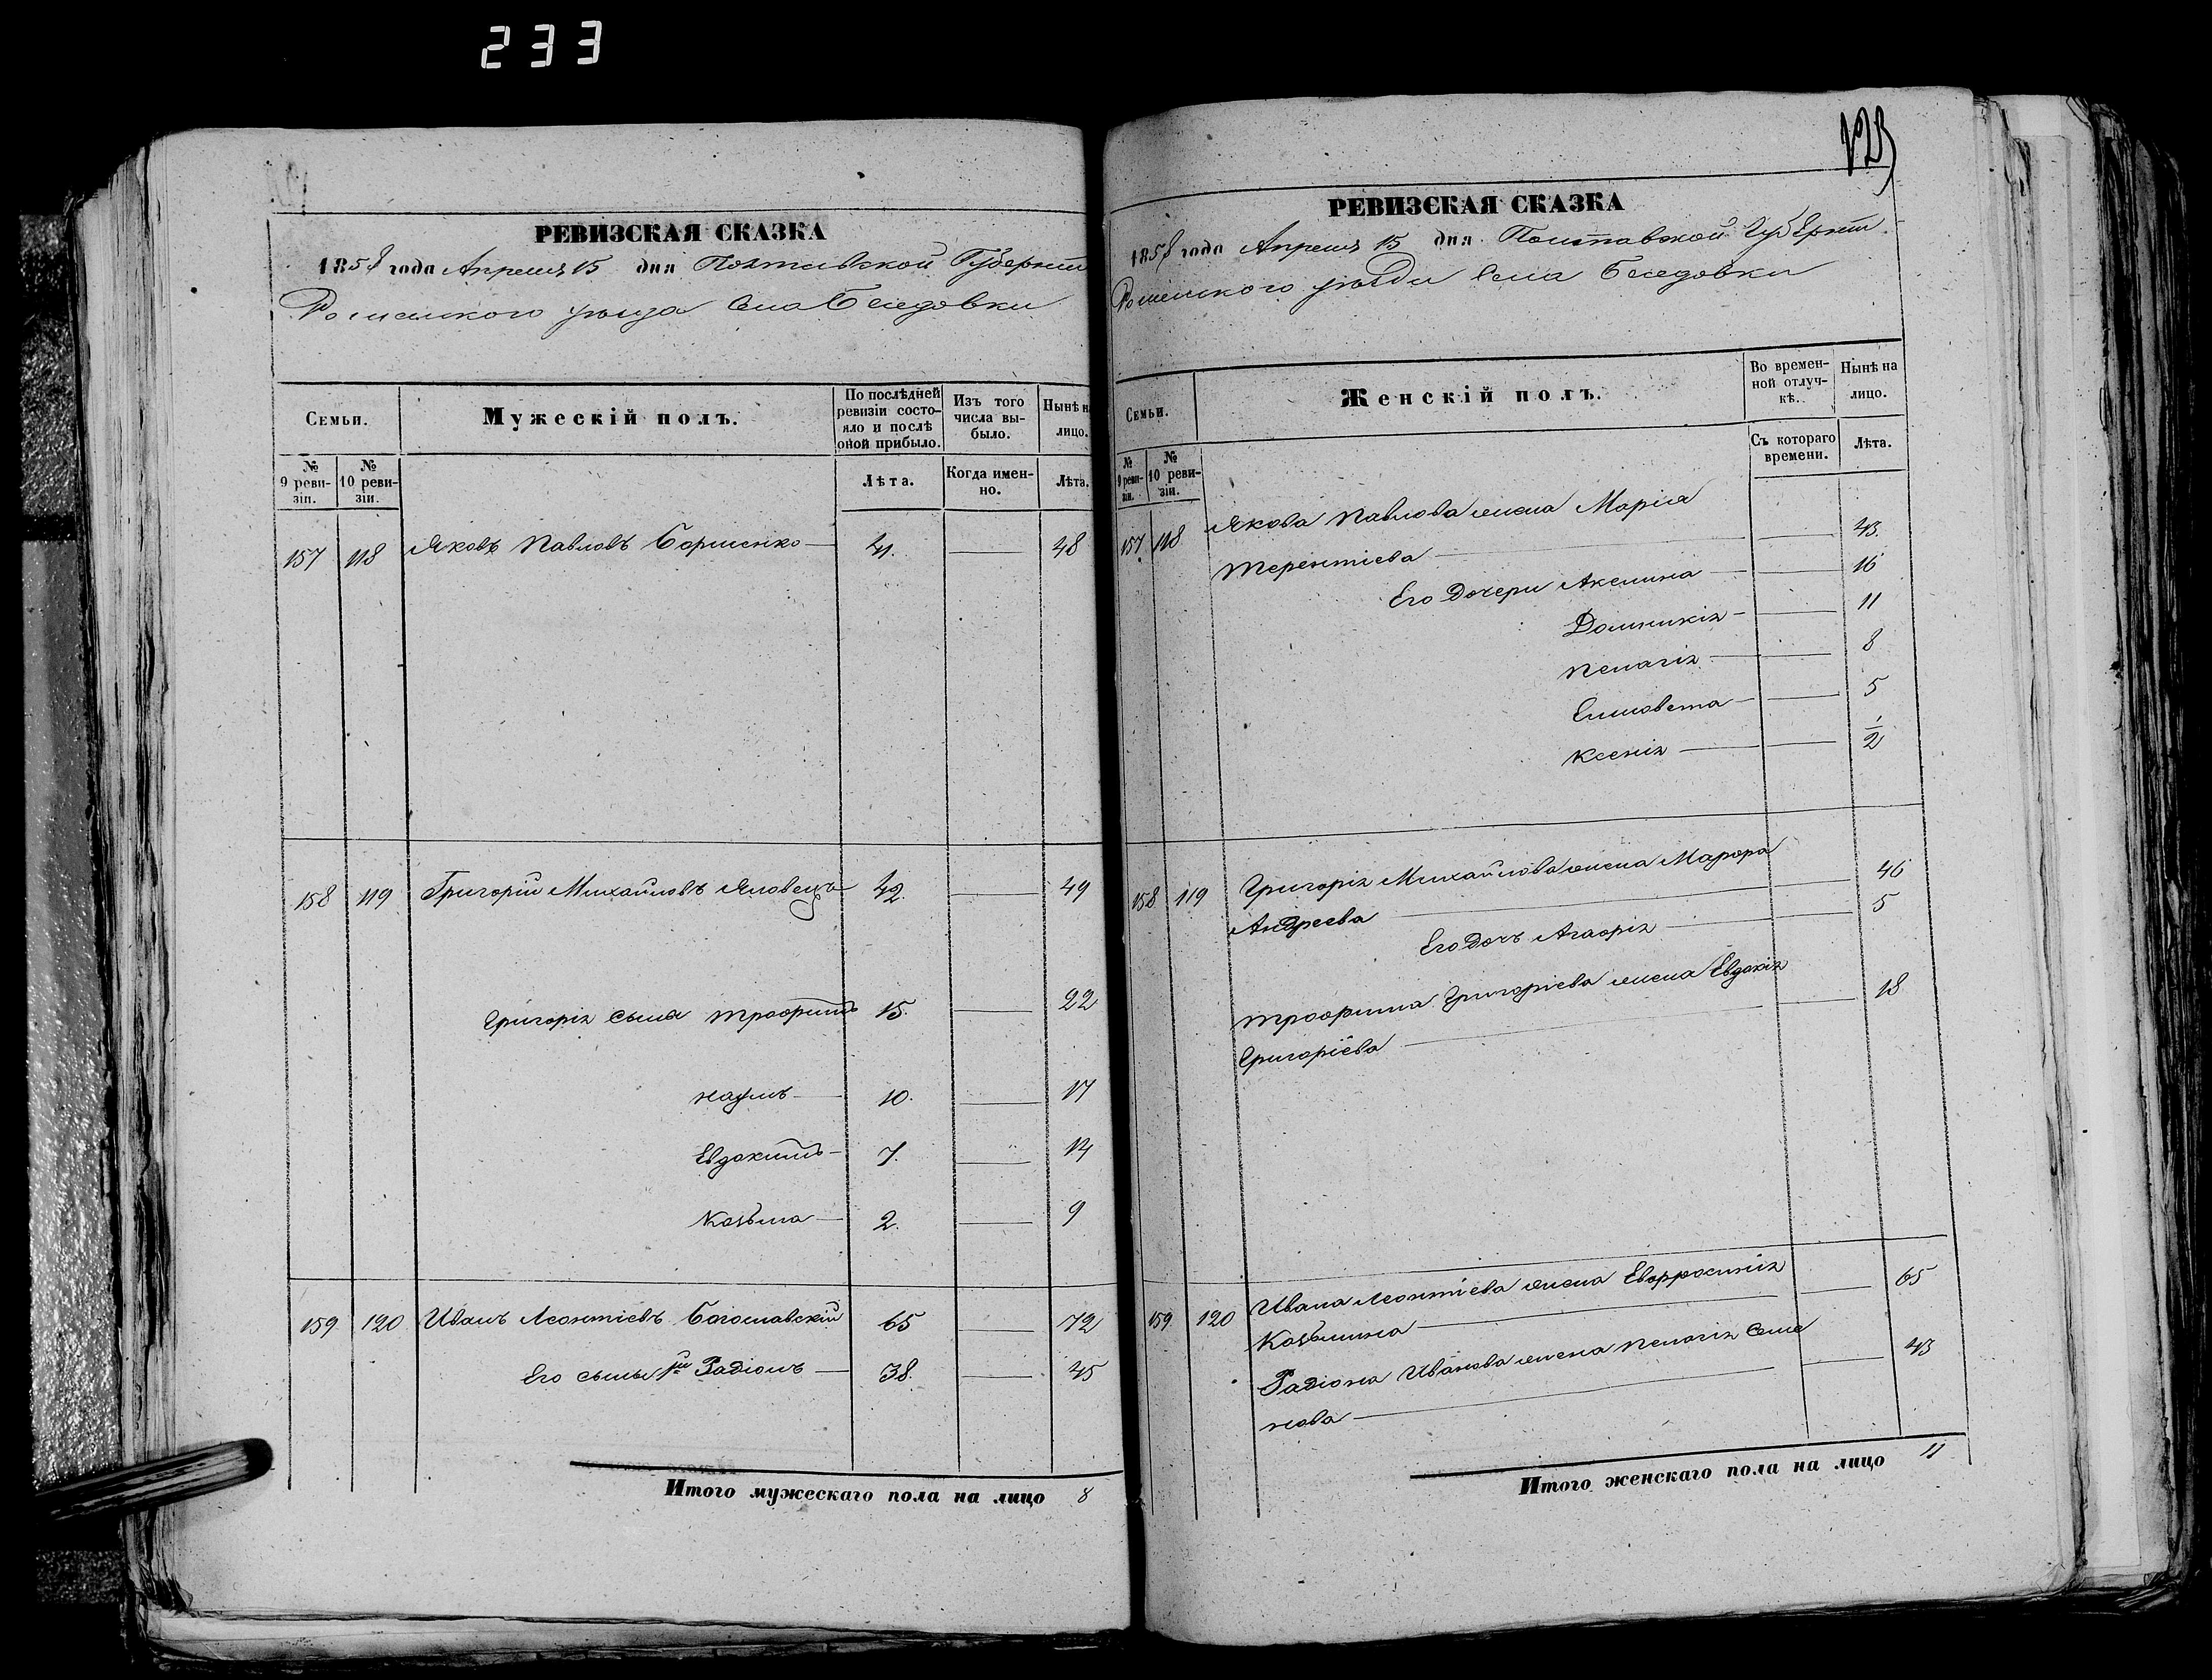 233
РЕВИЗСКАЯ СКАЗКА
1858 года Апреля 15 дня Полтавской Губерніи
Роменского уѣзда Села Беседовки
Семьи.
Мужескій полъ.
По послѣдней ревизіи состояло и послѣ оной прибыло.
Изъ того числа выбыло.
Нынѣ на лицо.
№ 9 ревизіи.
№ 10 ревизіи.
Лѣта.
Когда именно.
Лѣта.
157 118 Яковъ Павловъ Борисенко 41. 48
158 119 Григорій Михайловъ Яловецъ 42. 49
Григорія сыны Трофимъ 15. 22
Наумъ 10. 17
Евдокимъ 7. 14
Козьма 2. 9
159 120 Иванъ Леонтіевъ Богославскій 65 72
Его сынъ Радіонъ 38. 45
Итого мужескаго пола на лицо 8
123
РЕВИЗСКАЯ СКАЗКА
1858 года Апреля 15 дня Полтавской Губерніи
Роменского уѣзда Села Беседовки
Семьи.
Женскій полъ.
Во временной отлучкѣ.
Нынѣ на лицо.
№ 9 ревизіи.
№ 10 ревизіи.
Съ котораго времени.
Лѣта.
157 118 Якова Павлова жена Марія
Терентіева 43.
Его дочери Акелина 16
Домникія 11
Пелагія 8
Елисовета 5
Ксенія 1/2
158 119 Григорія Михайлова жена Марфа
Андреева 46
Его дочь Агафія 5
Трофима Григоріева жена Евдокія
Григоріева 18
159 120 Ивана Леонтіева жена Евфросинія
Козьмина 65
Радіона Иванова жена Пелагія Семе
нова 43
Итого женскаго пола на лицо 11